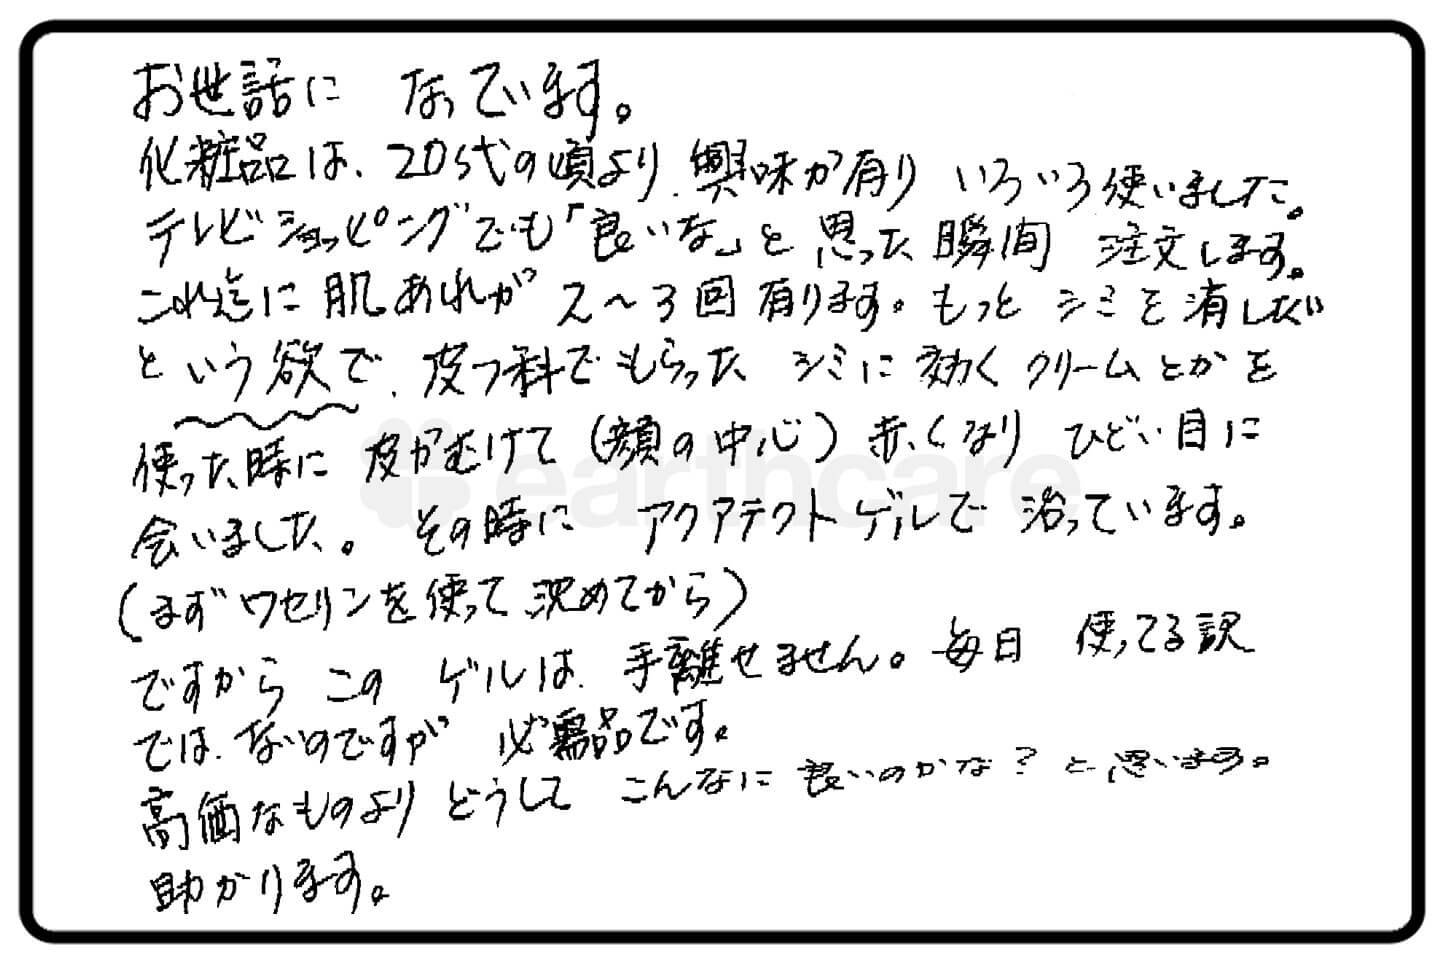 お世話に なっています。
化粧品は、20s代の頃より、興味が有り いろいろ使いました。
テレビショッピングでも「良いな」と思った瞬間 注文します。
これ迄に肌あれが2〜3回有ります。もっと シミを消したい
という欲で、皮フ科でもらった シミに効くクリームとかを
使った時に皮がむけて(顔の中心)赤くなり ひどい目に
会いました。その時に アクアテクトゲルで 治っています。
(まずワセリンを使って沈めてから)
ですから このゲルは、手離せません。毎日 使ってる訳
では、ないのですが 必需品です。
高価なものよりどうして こんなに良いのかな?と思います。
助かります。
earthcare